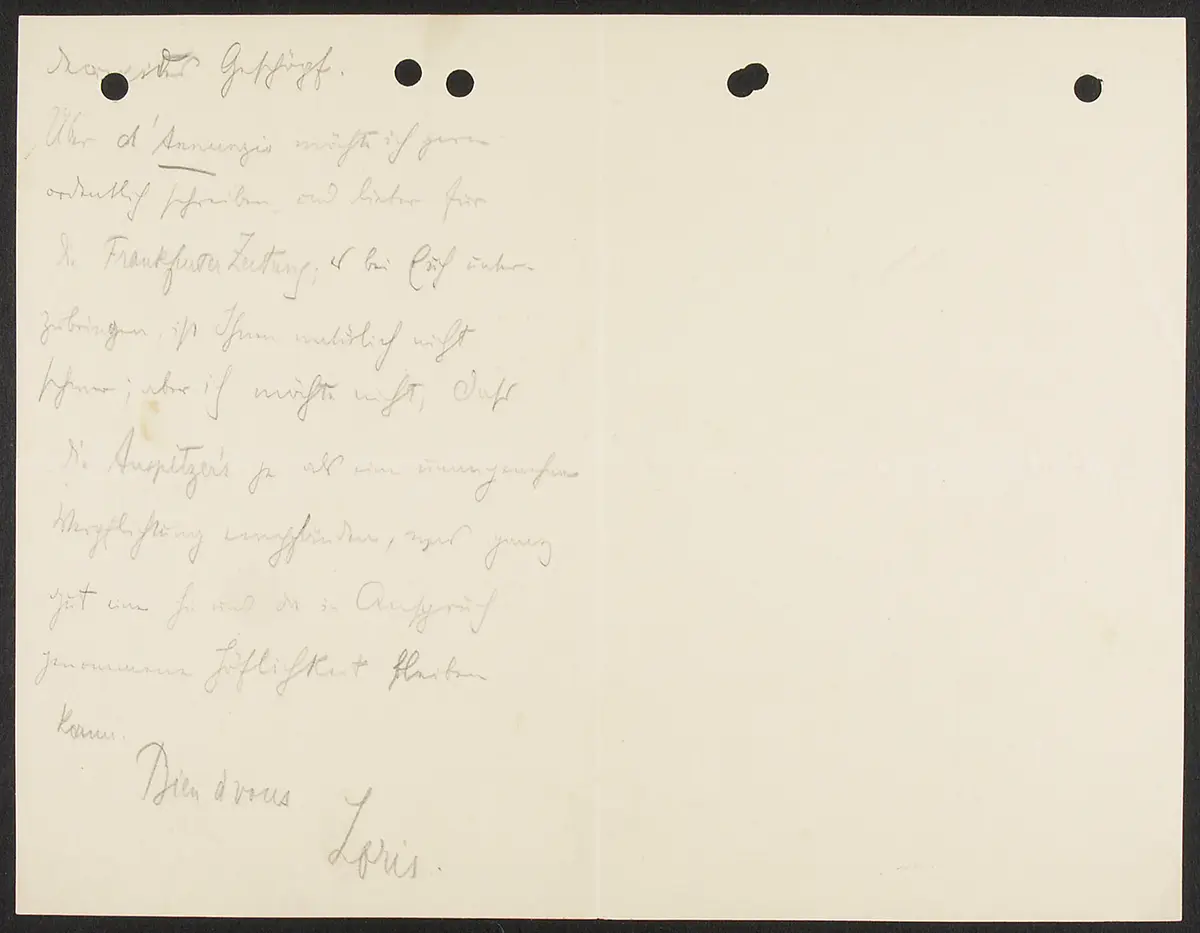 Geschöpf.
Über d'Annunzio möchte ich gern
ordentlich schreiben, und lieber für
die Frankfurter Zeitung; es bei Euch unter-
zubringen, ist Ihnen natürlich nicht
schwer; aber ich möchte nicht, dass
die Auspitzer's je als eine unangenehme
Verpflichtung empfänden, was ganz
gut eine hie und da in Anspruch
genommene Höflichkeit bleiben
kann.
Bien à vous
Loris.